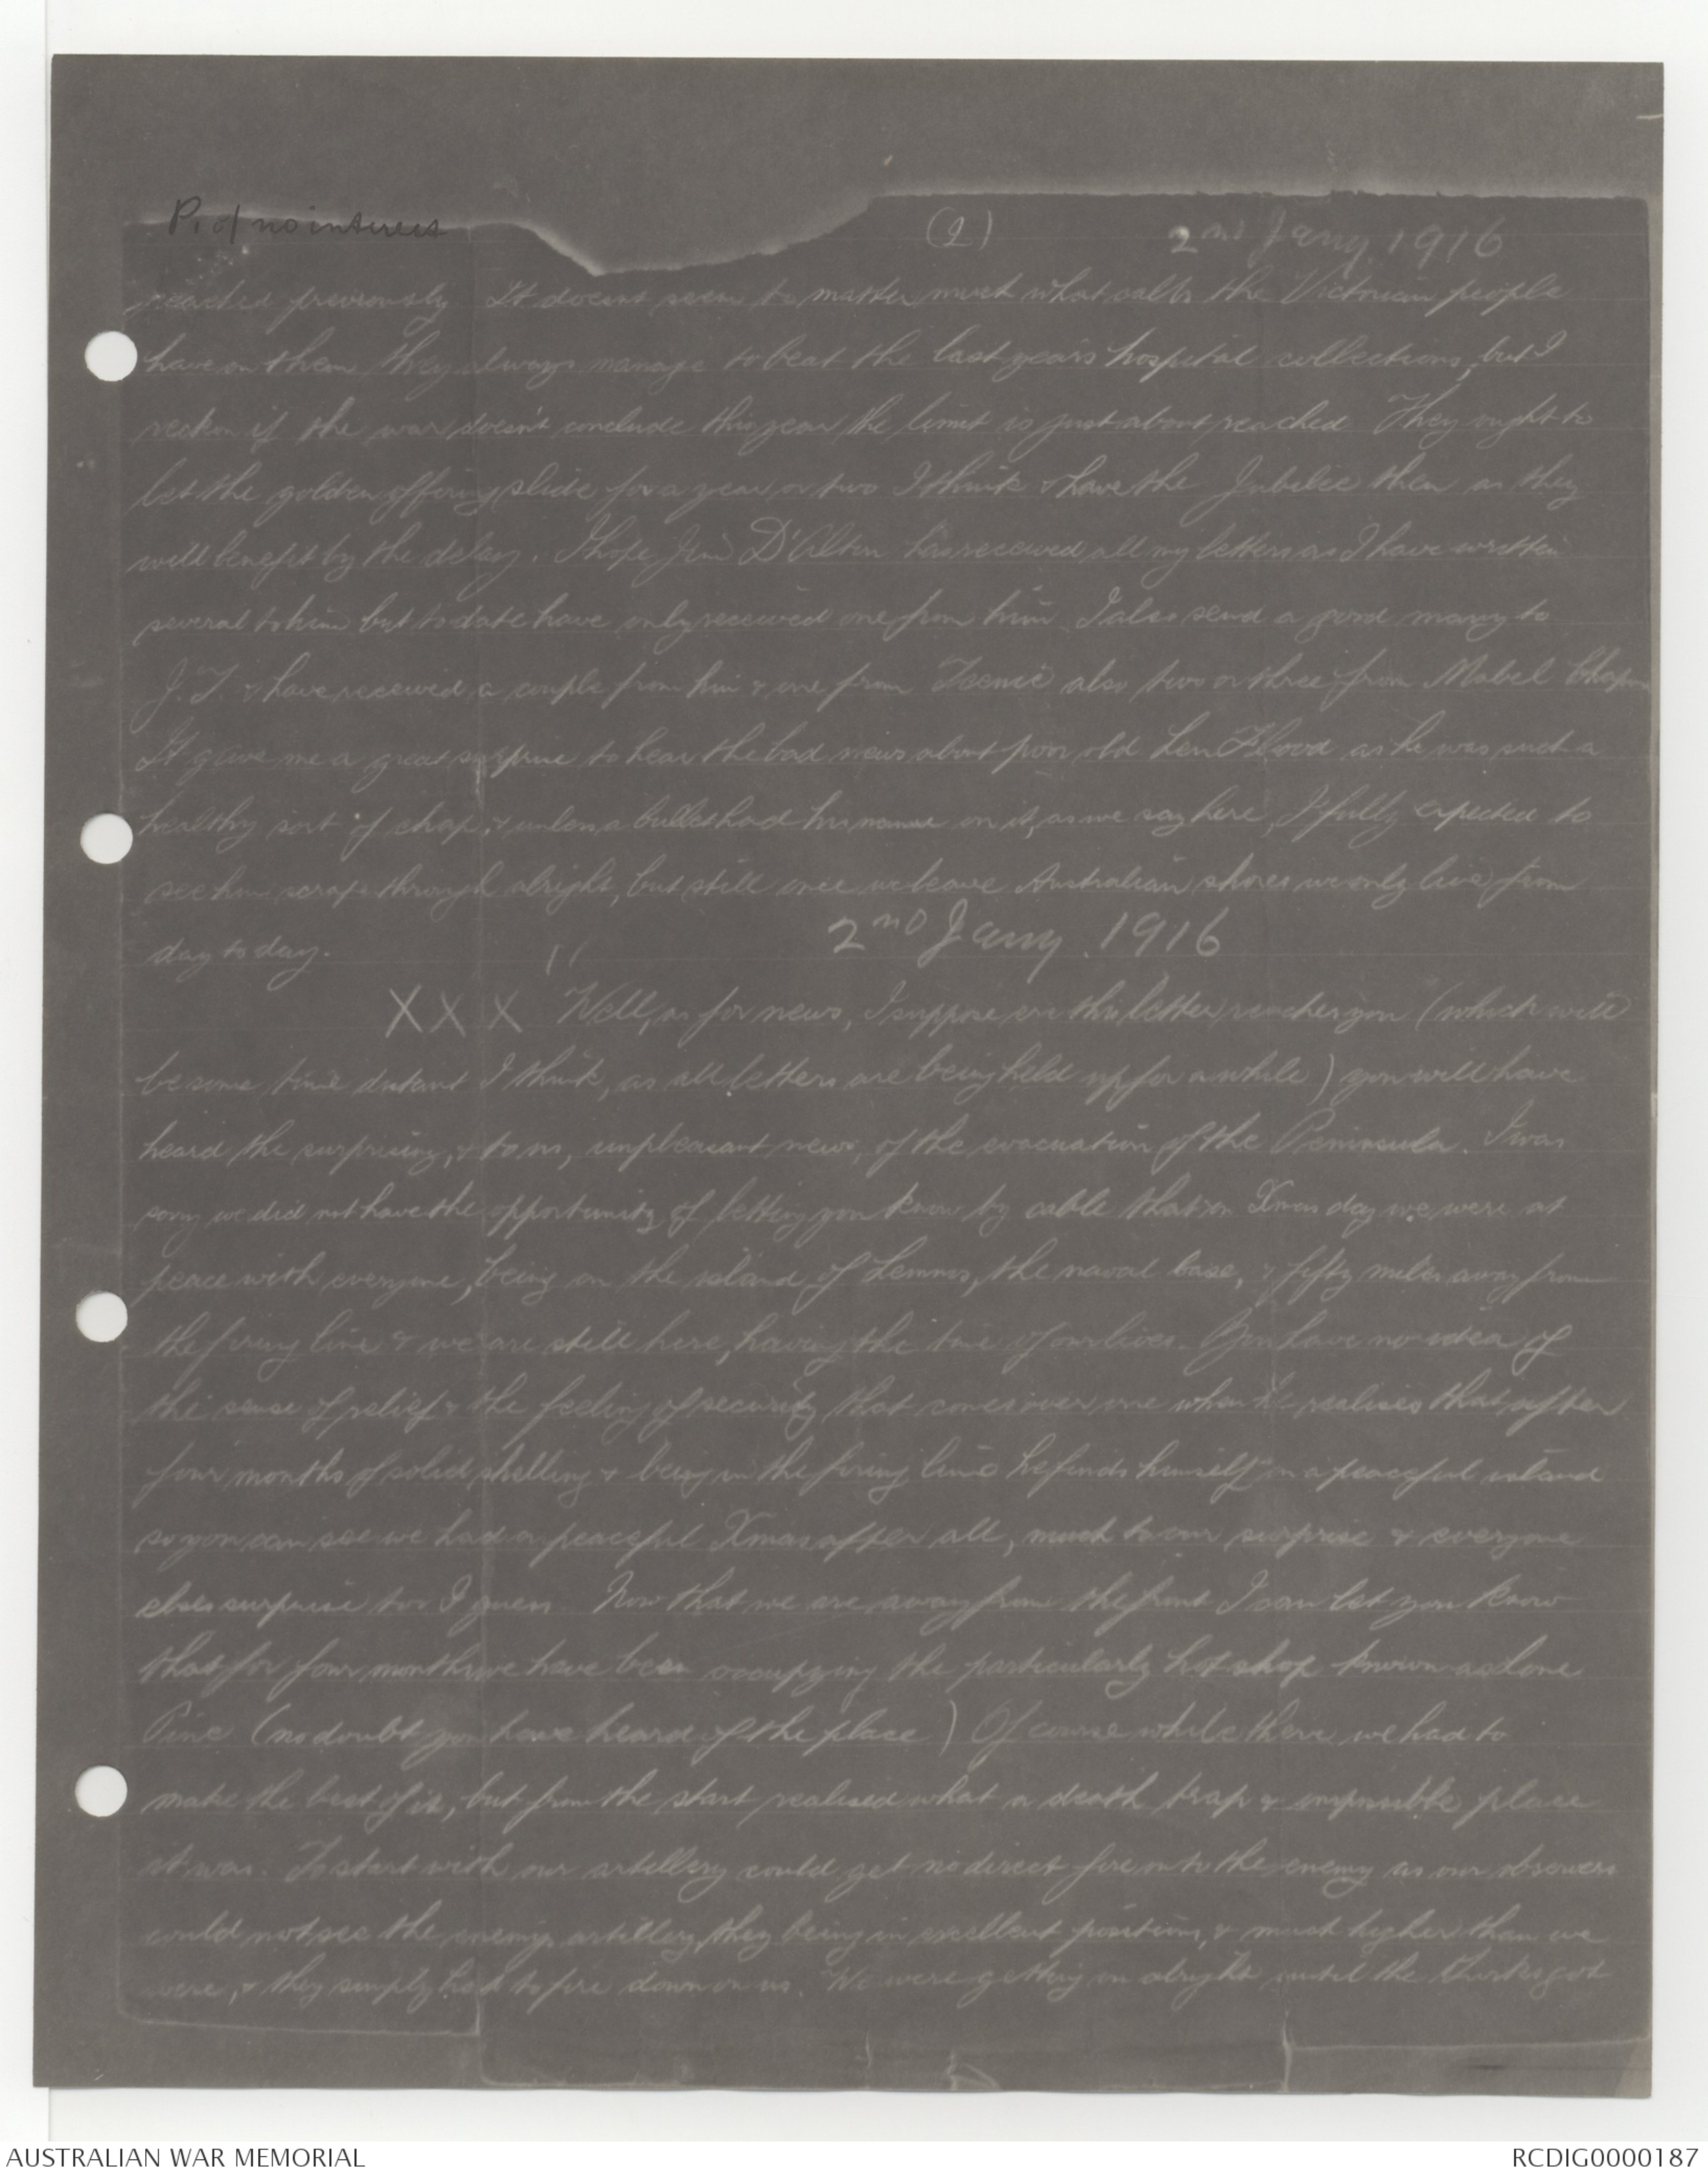 P. 1 of no interest
(2) 2nd Jany. 1916
reached previously. It doesnt seem to matter much what calls the Victorian people
have on them they always manage to beat the last years hospital collections, but I
reckon if the war doesn't conclude this year the limit is just about reached. They ought to
let the golden offering slide for a year or two I think & have the Jubilee then as they
will benefit by the delay. I hope Jim D'Alton has received all my letters as I have written
several to him but to date have only received one from him. I also send a good many to
J.T. & have received a couple from him & one from also two or three from Mabel
It gave me a great surprise to hear the bad news about poor old Len Flood as he was such a
healthy sort of chap, & unless a bullet had his name on it, as we say here, I fully expected to
see him scrape through alright, but still once we leave Australian shores we only live from
day to day.
2nd Jany. 1916
XXX Well, as for news, I suppose ere this letter reaches you (which will
be some time distant I think, as all letters are being held up for a while) you will have
heard the surprising, & to us, unpleasant news, of the evacuation of the Peninsula. I was
sorry we did not have the opportunity of letting you know by cable that on Xmas day we were at
peace with everyone, being on the island of Lemnos, the naval base, & fifty miles away from
the firing line & we are still here, having the time of our lives. You have no idea of
the sense of relief & the feeling of security that comes over one when he realises that after
four months of solid shelling & being in the firing line he finds himself on a peaceful island
so you can see we had a peaceful Xmas after all, much to our surprise & everyone
elses surprise too I guess. Now that we are away from the front I can let you know
that for four months we have been occupying the particularly hot shop known as Lone
Pine (no doubt you have heard of the place) Of course while there we had to
make the best of it, but from the start realised what a death trap & impossible place
it was. To start with our artillery could get no direct fire onto the enemy as our observers
could not see the enemys artillery, they being in excellent positions, & much higher than we
were, & they simply had to fire down on us. We were getting on alright until the Turks got
AUSTRALIAN WAR MEMORIAL
RCDIG0000187